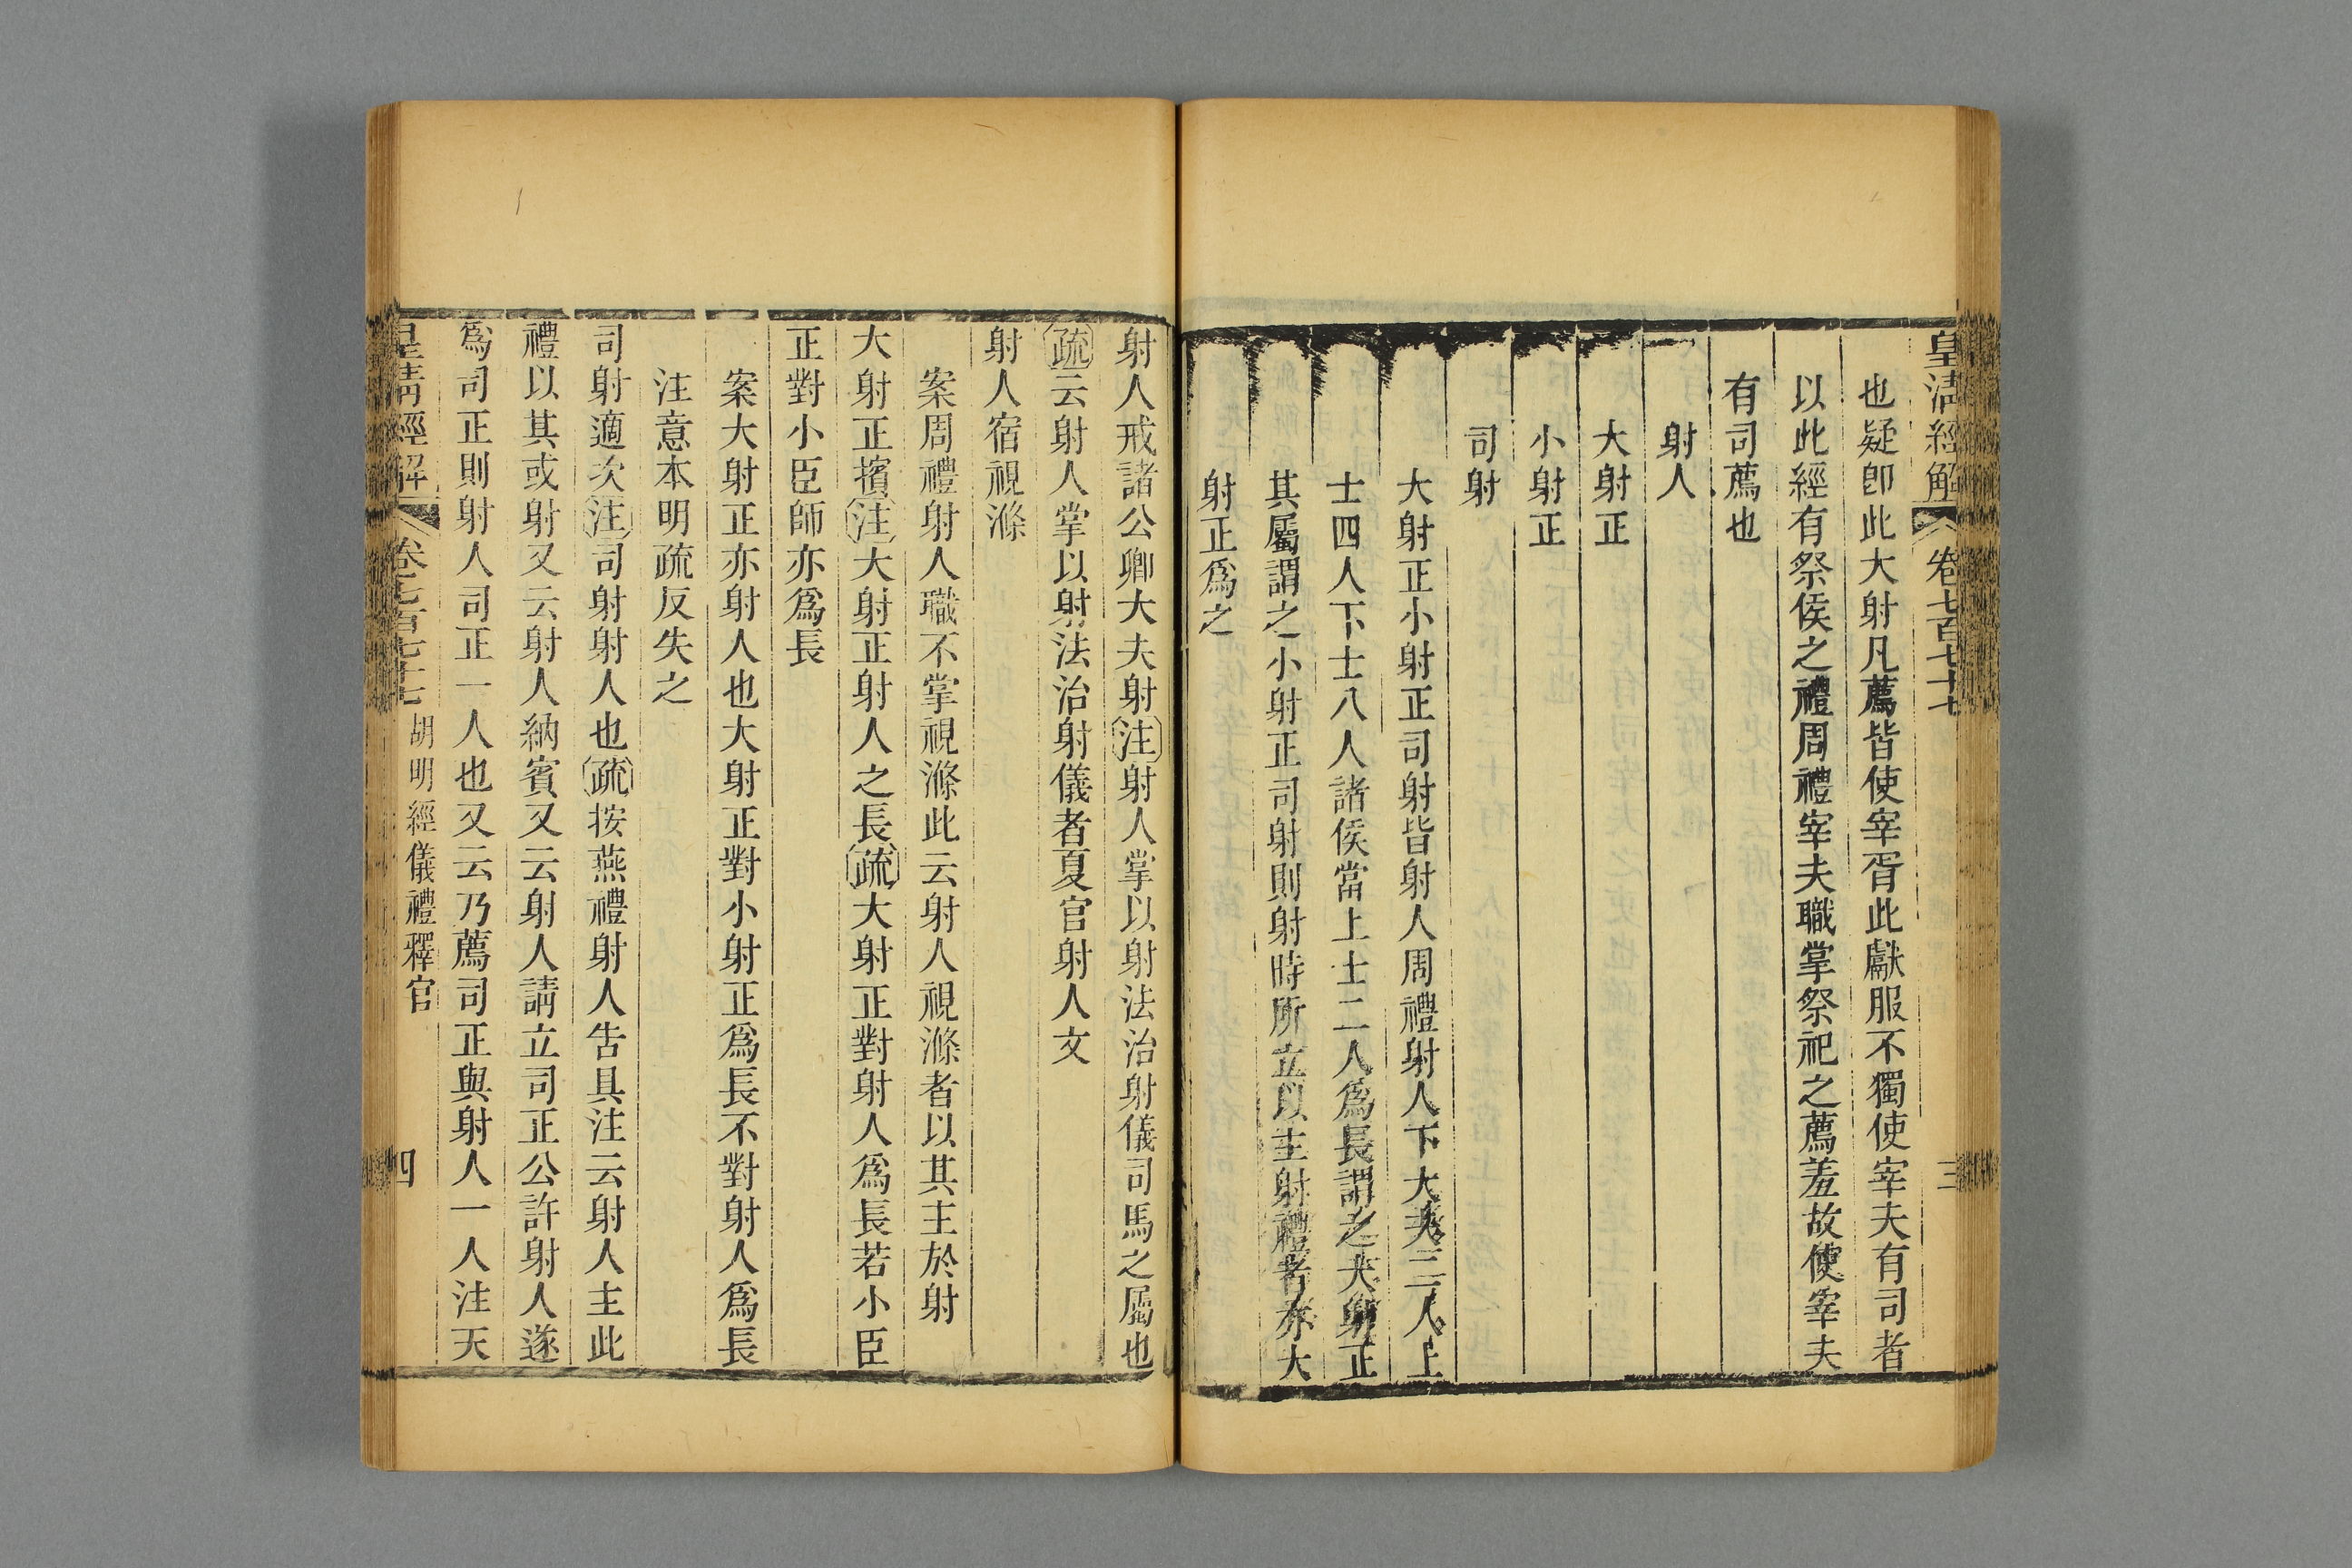 皇清經解 卷七百七十七 三
也疑卽此大射凡薦皆使宰胥此獻服不獨使宰夫有司者
以此經有祭侯之禮周禮宰夫職掌祭祀之薦羞故使宰夫
有司薦也
射人
大射正
小射正
司射
大射正小射正司射皆射人周禮射人下大夫二人上
士四人下士八人諸侯當上士二人爲長謂之大射正
其屬謂之小射正司射則射時所立以主射禮者亦大
射正爲之
射人戒諸公卿大夫射注射人掌以射法治射儀司馬之屬也
疏云射人掌以射法治射儀者夏官射人文
射人宿視滌
案周禮射人職不掌視滌此云射人視滌者以其主於射
大射正擯注大射正射人之長疏大射正對射人爲長若小臣
正對小臣師亦爲長
案大射正亦射人也大射正對小射正爲長不對射人爲長
注意本明疏反失之
司射適次注司射射人也疏按燕禮射人告具注云射人主此
禮以其或射又云射人納賓又云射人請立司正公許射人遂
爲司正則射人司正一人也又云乃薦司正與射人一人注天
皇清經解 卷七百七十七 胡明經儀禮釋官 四